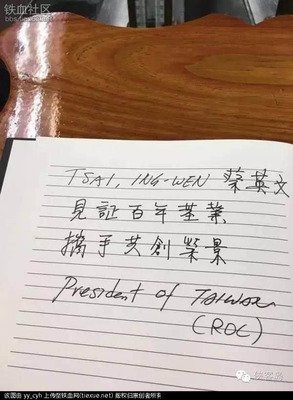 铁血社区
TSAI, ING-WEN 蔡英文
見証百年基業
攜手共創榮景
President of TAIWAN
(ROC)
这图由 yy_cyh 上传至铁血网(tiexue.net) 版权归原创者所有